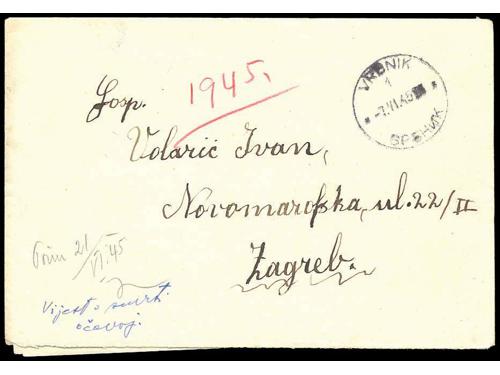 1945.
VRBNIK
1
-7.VI.45
ВРБНИК
Gosp.
Volarić Ivan,
Novomarofska, ul. 22/II
Zagreb.
Prim 21/VI.45
Vijest o smrti
očevoj.